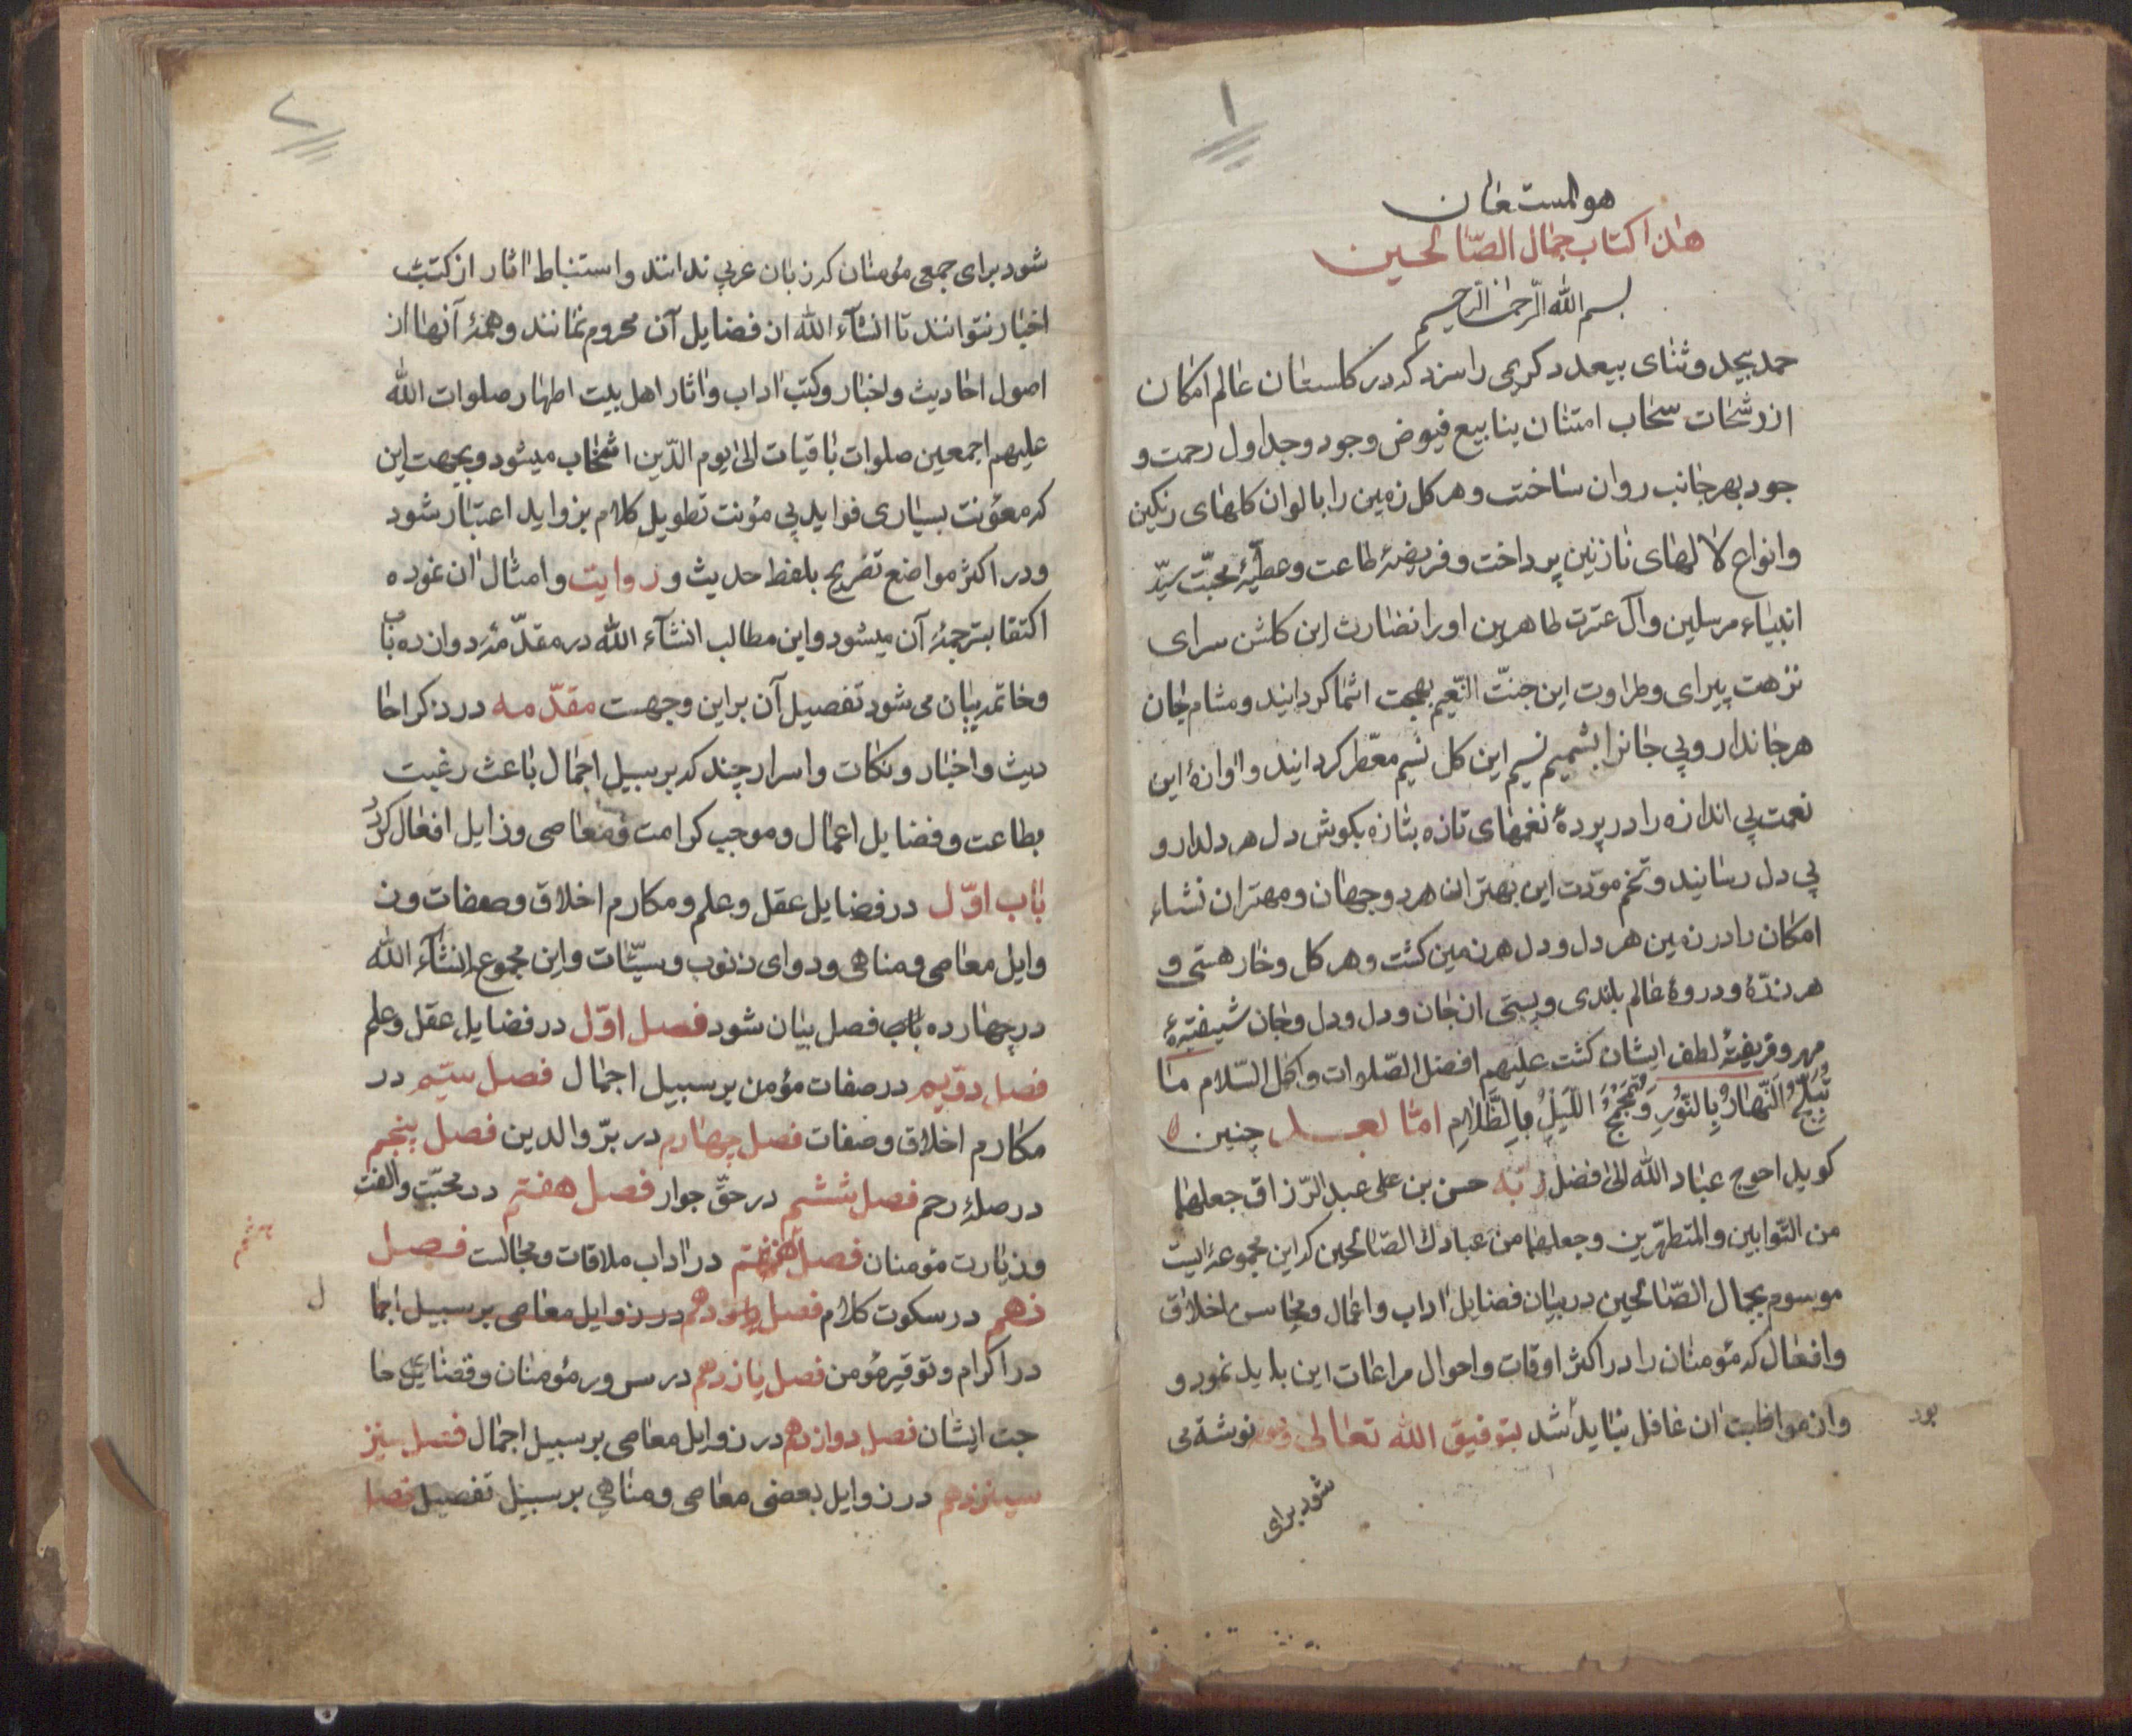 ۱
هو المستعان
هذا کتاب جمال الصّالحین
بسم الله الرّحمن الرّحیم
حمد بیحد و ثنای بیعدد کریمی را سزد که در کلستان عالم امکان
از رشحات سحاب امتنان ینابیع فیوض وجود و جداول رحمت و
جود بهر جانب روان ساخت و هر کل زمین را بالوان کلهای رنکین
و انواع لالهای نازنین پرداخت و فریضهٔ طاعت و عطیّهٔ محبّت سیّد
انبیاء مرسلین و آل عترت طاهرین او را نضارت این کلشن سرای
نزهت پیرای و طراوت این جنّت النّعیم بهجت انتما کردانید و مشام جان
هر جاندار و بی جانرا بشمیم نسیم این کل نسیم معطّر کردانید و اوازهٔ این
نعمت بی اندازه را در پردهٔ نغمهای تازه بتازه بکوش دل هر دلدار و
بی دل رسانید و تخم مودّت این بهتران هر دو جهان و مهتران نشاء
امکان را در زمین هر دل و دل هر زمین کشت و هر کل و خار هستی و
هر ذرّهٔ و دروهٔ عالم بلندی و پستی از جان و دل و دل و جان شیفتهٔ
مهر و فریفتهٔ لطف ایشان کشت علیهم افضل الصّلوات و اکمل السّلام ما
تَبَلَّجَ النَّهارُ بِالنُّورِ وَ اللَّیْلُ بِالظَّلامِ امّا بعــد چنین
کوید احوج عباد الله الی فضل ربّه حسن بن علی عبد الرّزاق جعلهما
من التّوابین و المتطهّرین و جعلهما من عبادك الصّالحین که این مجموعه ایست
موسوم بجمال الصّالحین در بیان فضایل اداب و اعمال و محاسن اخلاق
و افعال که مؤمنان را در اکثر اوقات و احوال مراعات این باید نمود و
و از مواظبت ان غافل نباید شد بتوفیق الله تعالی نوشته می
بود
شود برای
۲
شود برای جمعی مؤمنان که زبان عربی ندانند و استنباط اثار از کتب
اخبار نتوانند تا انشآء الله از فضایل آن محروم نمانند و همهٔ آنها از
اصول احادیث و اخبار و کتب اداب و اثار اهل بیت اطهار صلوات الله
علیهم اجمعین صلوات باقیات الی یوم الدّین انتخاب میشود و بجهت این
که معؤنت بسیاری فواید بی مؤنت تطویل کلام بزواید اعتبار شود
و در اکثر مواضع تصریح بلفظ حدیث و روایت و امثال ان نموده
اکتفا بترجمهٔ آن میشود و این مطالب انشآء الله در مقدّمه و دوازده باب
و خاتمه بیان می شود تفصیل آن بر این وجهست مقدّمه در ذکر احا
دیث و اخبار و نکات و اسرار چند که بر سبیل اجمال باعث رغبت
بطاعت و فضایل اعمال و موجب کرامت معاصی و رذایل افعال کردد
باب اوّل در فضایل عقل و علم و مکارم اخلاق و صفات و ر
وایل معاصی و مناهی و دوای ذنوب و سیّئات و این مجموع انشآء الله
در چهارده باب فصل بیان شود فصل اوّل در فضایل عقل و علم
فصل دویم در صفات مؤمن بر سبیل اجمال فصل سیّم در
مکارم اخلاق و صفات فصل چهارم در برّ والدین فصل پنجم
در صلهٔ رحم فصل ششم در حقّ جوار فصل هفتم در محبّت و الفت
و زیارت مؤمنان فصل در اداب ملاقات و مجالست فصل
هشتم
نهم در سکوت کلام فصل دهم در زوایل معاصی بر سبیل اجما
ل
در اکرام و توقیر مؤمن فصل یازدهم در سرور مؤمنان و قضای حا
جت ایشان فصل دوازدهم در زوایل معاصی بر سبیل اجمال فصل سیز
سیزدهم در زوایل بعضی معاصی و مناهی بر سبیل تفصیل فصل